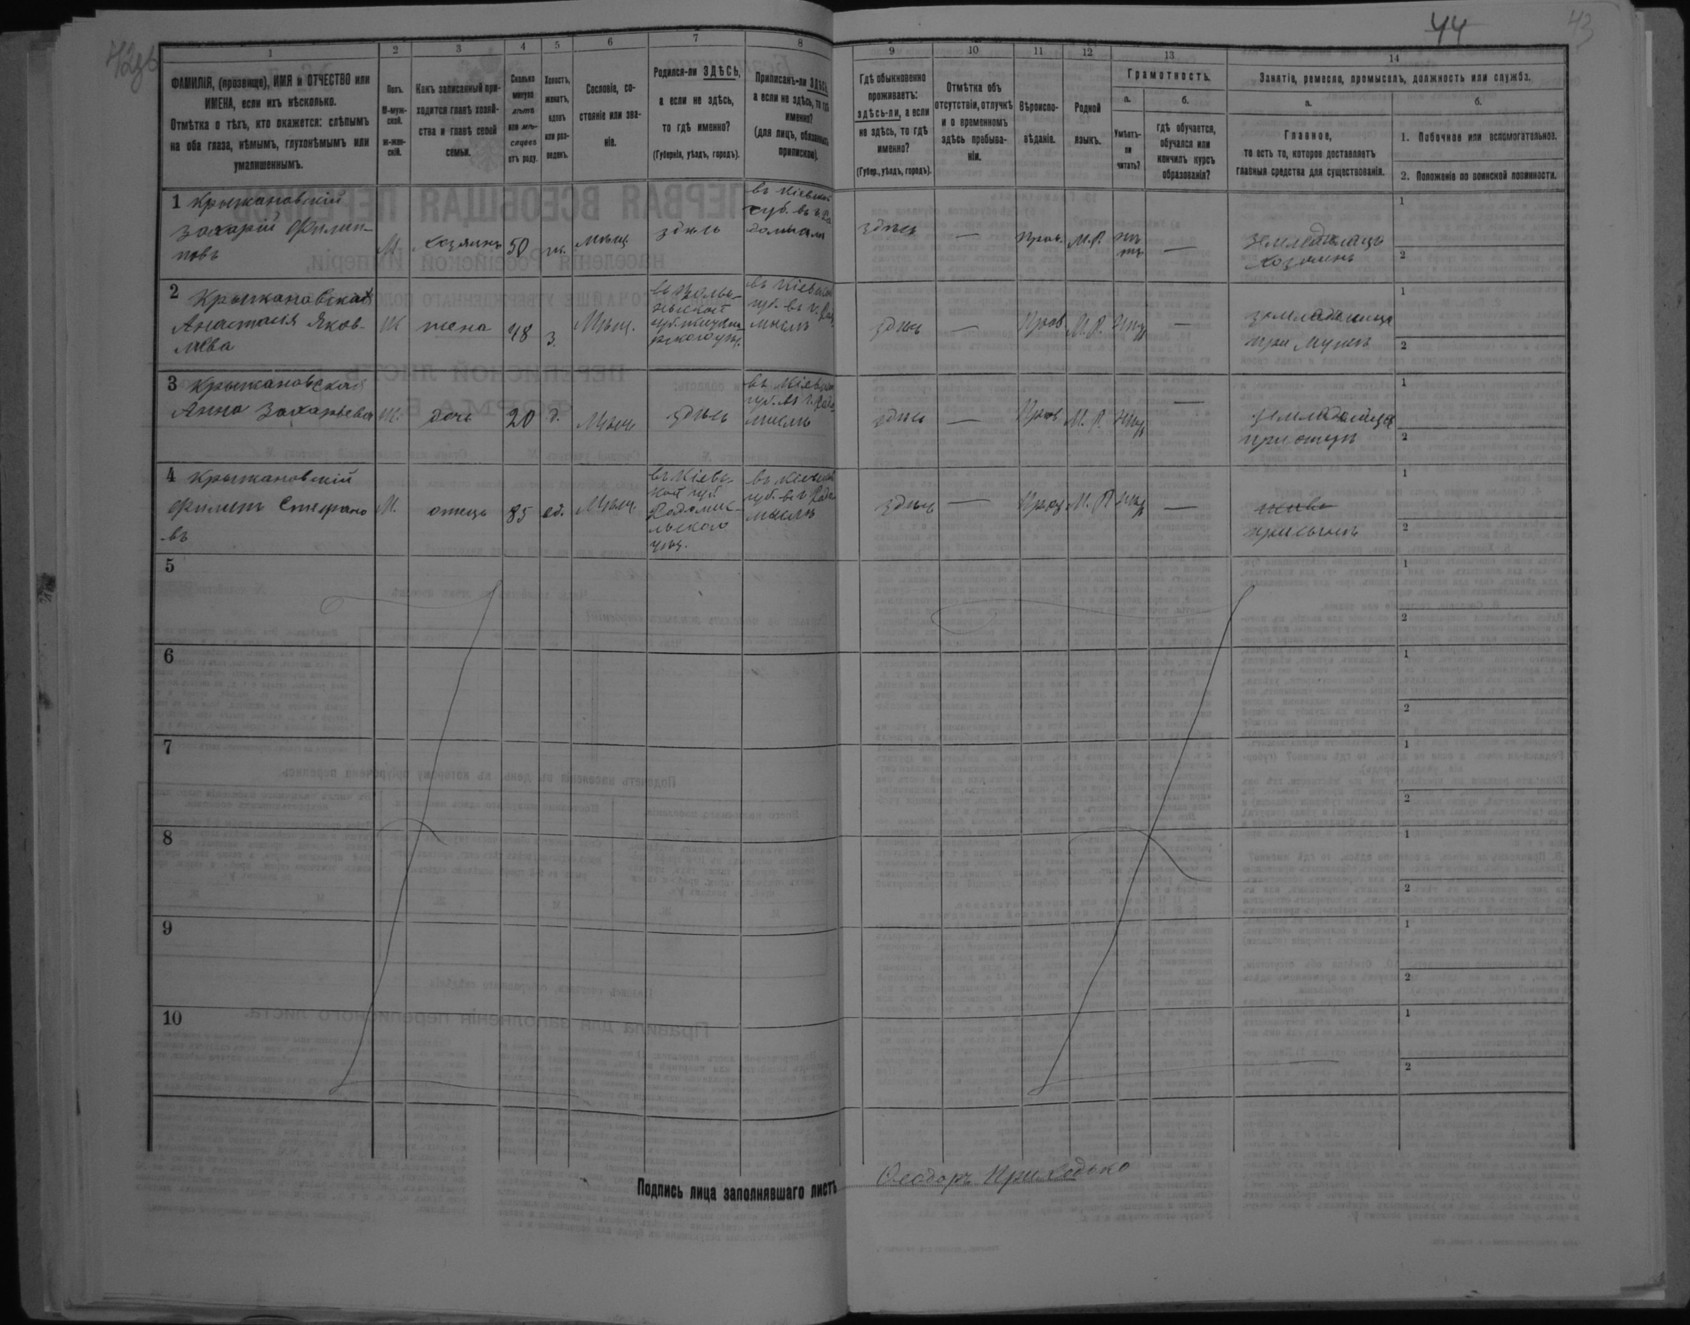 44
43
1
2
3
4
5
6
7
8
9
10
11
12
13
14
ФАМИЛІЯ, (прозвище), ИМЯ и ОТЧЕСТВО или
ИМЕНА, если ихъ нѣсколько.
Отмѣтка о тѣхъ, кто окажется: слѣпымъ
на оба глаза, нѣмымъ, глухонѣмымъ или
умалишеннымъ.
Полъ.
М-муж-
ской.
ж-жен-
скій.
Какъ записанный при-
ходится главѣ хозяй-
ства и главѣ своей
семьи.
Сколько
минуло
лѣтъ
или мѣ-
сяцевъ
отъ роду.
Холостъ,
женатъ,
вдовъ
или раз-
веденъ.
Сословіе, со-
стояніе или зва-
ніе.
Родился-ли ЗДѢСЬ,
а если не здѣсь,
то гдѣ именно?
(Губернія, уѣздъ, городъ).
Приписанъ-ли ЗДѢСЬ,
а если не здѣсь, то гдѣ
именно?
(для лицъ, обязанныхъ
припискою).
Гдѣ обыкновенно
проживаетъ:
здѣсь-ли, а если
не здѣсь, то гдѣ
именно?
(Губер., уѣздъ, городъ).
Отмѣтка объ
отсутствіи, отлучкѣ
и о временномъ
здѣсь пребыва-
ніи.
Вѣроиспо-
вѣданіе.
Родной
языкъ.
Грамотность.
а.
Умѣетъ-
ли
читать?
б.
гдѣ обучается,
обучался или
кончилъ курсъ
образованія?
Занятіе, ремесло, промыселъ, должность или служба.
а.
Главное,
то есть то, которое доставляетъ
главныя средства для существованія.
б.
1. Побочное или вспомогательное.
2. Положеніе по воинской повинности.
1 Крыжановскій
Захарій Филип-
повъ
М.
хозяинъ
50
ж.
Мѣщ.
здѣсь
въ Кіевской
губ. въ г. Ра
домысли
здѣсь
—
Прав.
М.Р.
нѣ
тъ
—
земледѣлецъ
хозяинъ
1
2
2 Крыжановская
Анастасія Яков-
лева
Ж
жена
48
з.
Мѣщ.
въ Кіевской
губ. въ г. Рад
мыслѣ
здѣсь
—
Прав
М.Р.
—
земледѣлица
при мужѣ
1
2
3 Крыжановская
Анна Захарьева
Ж.
дочь
20
д.
Мѣщ.
здѣсь
въ Кіевской
губ. въ г. Радо
мыслѣ
здѣсь
—
Прав
М.Р.
—
земледѣлица
при отцѣ
1
2
4 Крыжановскій
Филипъ Стефано
въ
М.
отецъ
85
вд.
Мѣщ.
въ Кіевс-
кой губ
Радомыс-
льского
уѣз.
въ Кіевской
губ. въ г. Радо
мыслѣ
здѣсь
—
Прав
М.Р
—
при сынѣ
1
2
5
1
2
6
1
2
7
1
2
8
1
2
9
1
2
10
1
2
Подпись лица заполнявшаго листъ
Ѳеодоръ Приходько